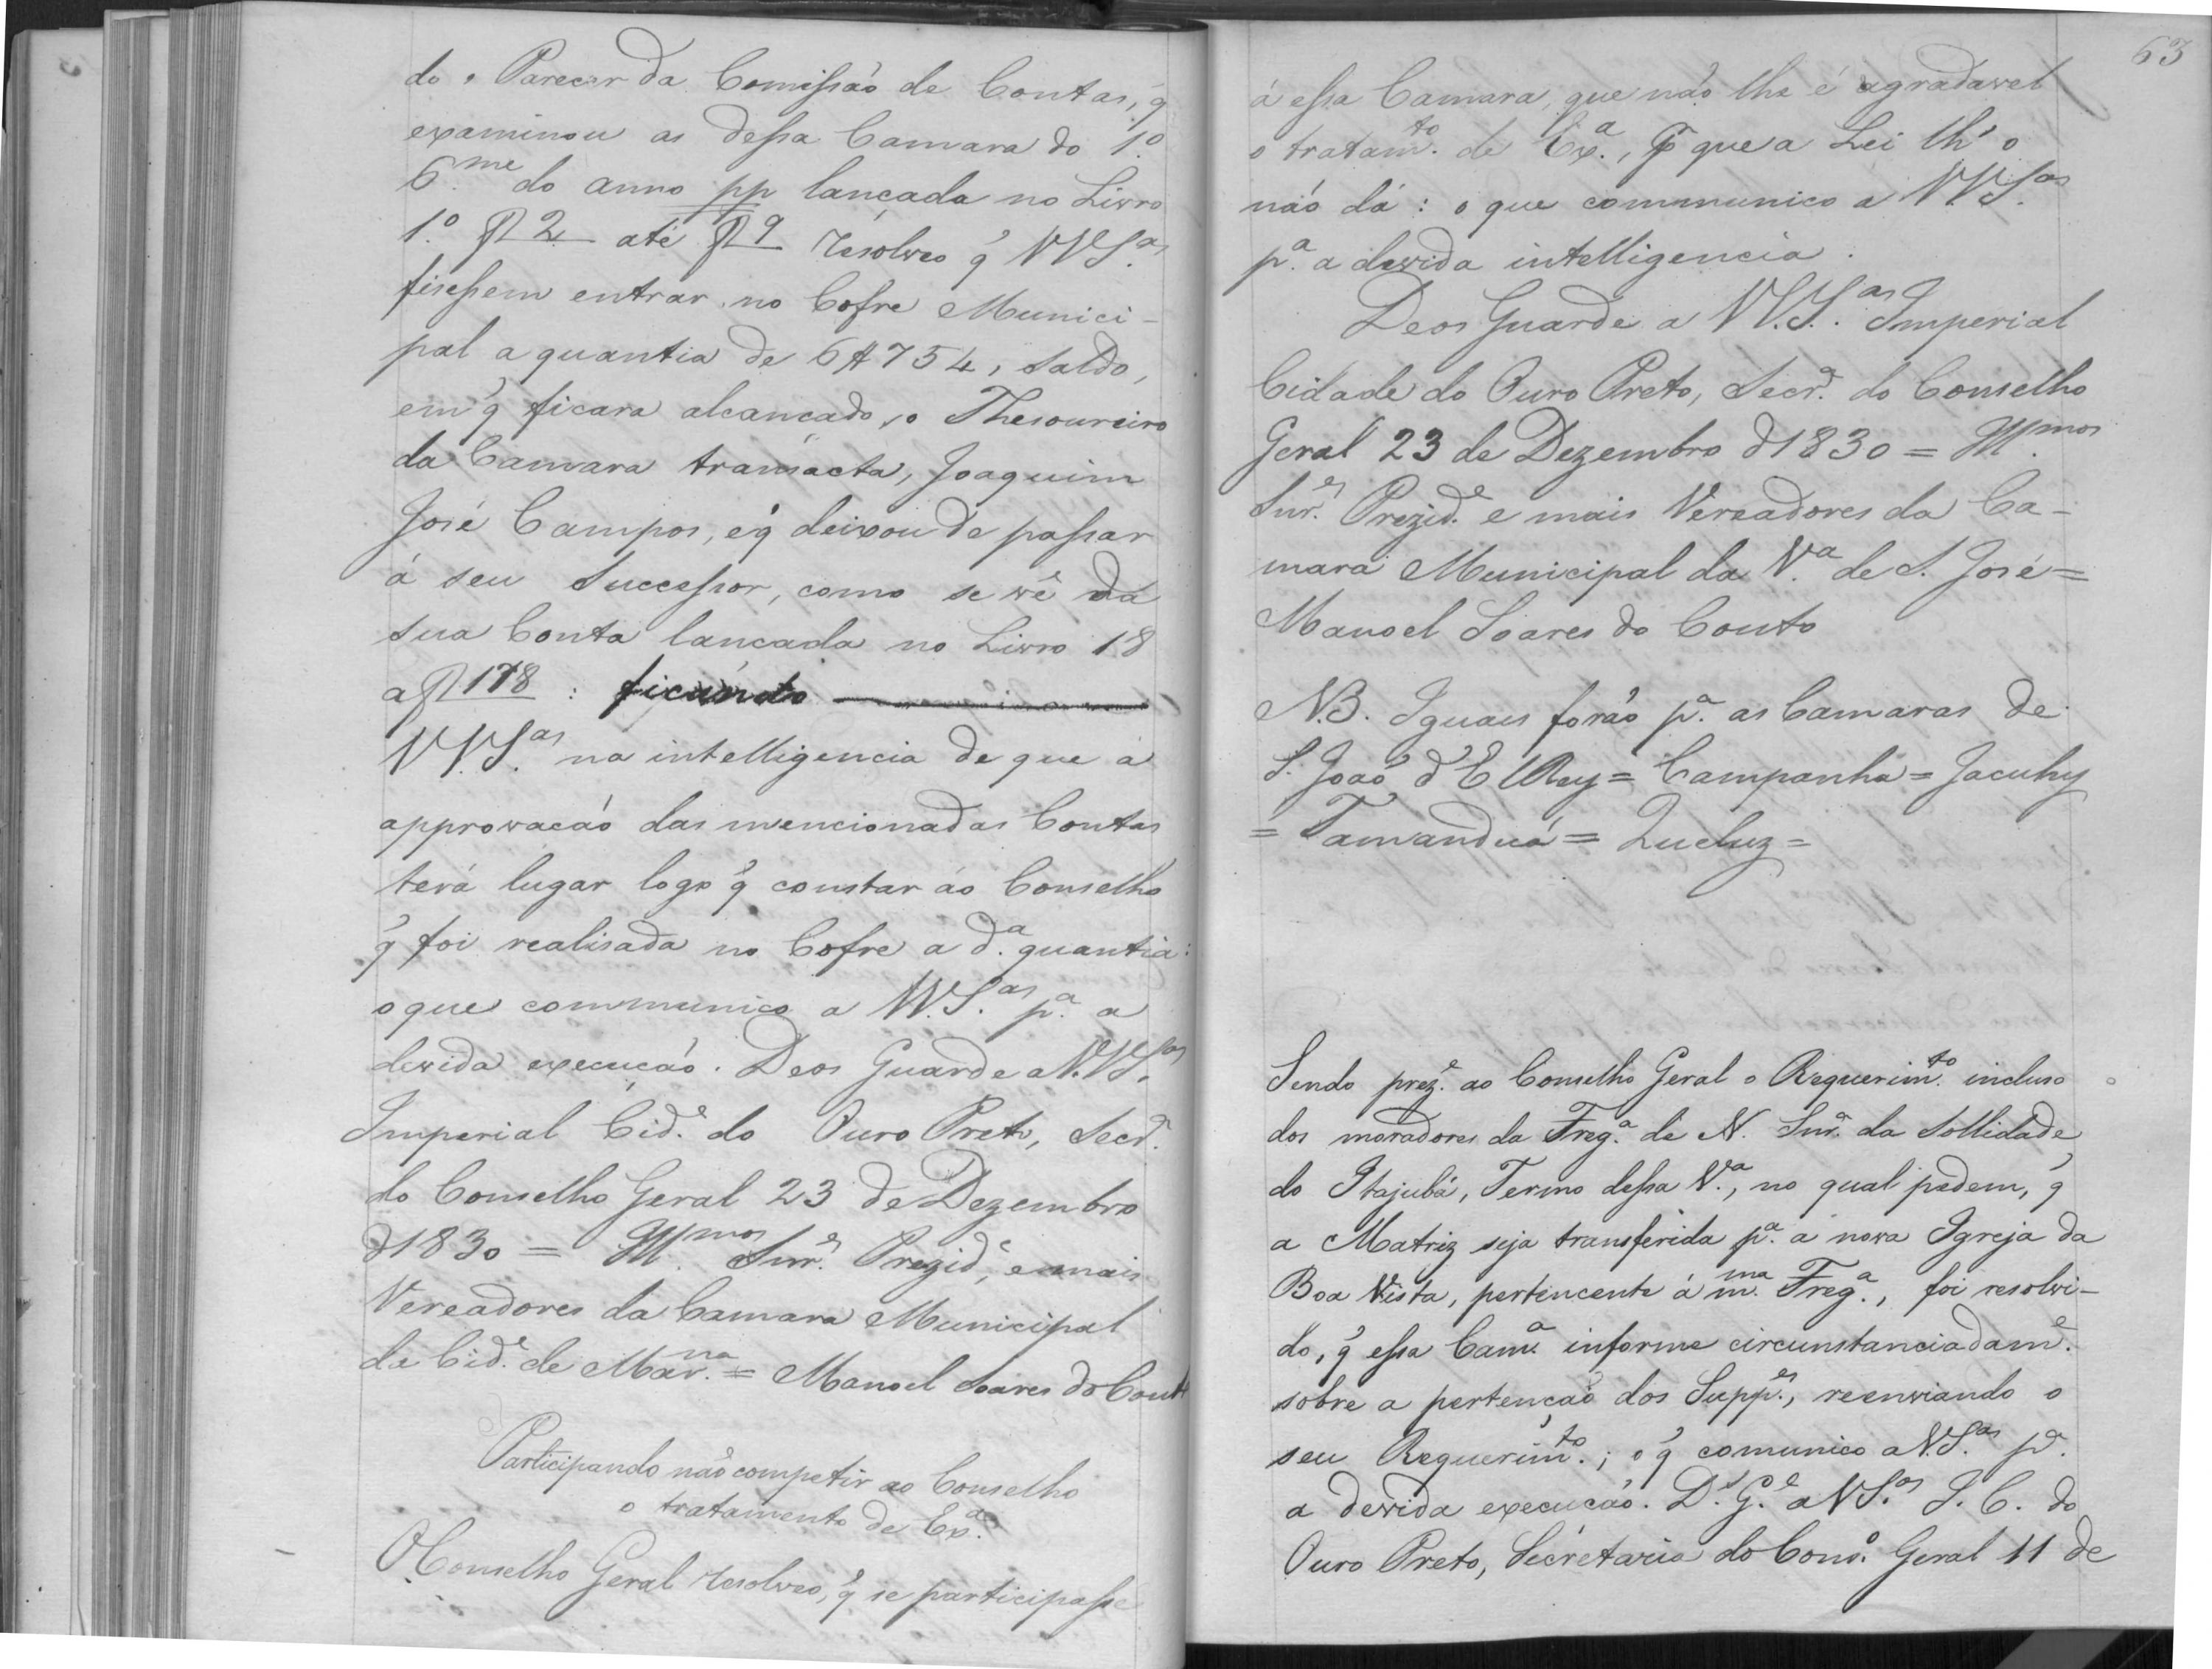 do o Parecer da Comissão de Contas, q̃
examinou as dessa Camara do 1.º
6.me do anno pp lançada no Livro
1.º fl 2 até fl 9 resolveo q̃ VVS.as
fisessem entrar no Cofre Munici-
pal a quantia de 6#754, saldo,
em q̃ ficara alcançado, o Thesoureiro
da Camara transacta, Joaquim
José Campos, e q̃ deixou de passar
á seu Successor, como se vê da
sua Conta lançada no Livro 18
a fl 178 : ficando
VVS.as na intelligencia de que a
approvação das mencionadas Contas
terá lugar logo q̃ constar áo Conselho
q̃ foi realisada no Cofre a d.a quantia:
o que communico a VV.S.as p.a a
devida execução. Deos Guarde a VVS.as
Imperial Cid.e do Ouro Preto, Secr.a
do Conselho Geral 23 de Dezembro
d'1830 = Ill.mos Snr.es Prezid.e, e mais
Vereadores da Camara Municipal
da Cid.e de Mar.na = Manoel Soares do Couto
Participando não competir ao Conselho
o tratamento de Ex.a
O Conselho Geral resolveo, q̃ se participasse
63
á essa Camara, que não lhe é agradavel
o tratam.to de Ex.a, p que a Lei lh'o
não dá : o que communico a VVS.as
p.a a devida intelligencia.
Deos Guarde a VV.S.as Imperial
Cidade do Ouro Preto, Secr.a do Conselho
Geral 23 de Dezembro d'1830 = Ill.mos
Snr.es Prezid.e e mais Vereadores da Ca-
mara Municipal da V.a de S. José =
Manoel Soares do Couto
N.B. Iguaes forão p.a as Camaras de
S. João d'El Rey = Campanha = Jacuhy
= Tamanduá = Queluz =
Sendo prez.e ao Conselho Geral o Requerim.to incluso
dos moradores da Freg.a de N. Snr.a da Sollidade
do Itajubá, Termo dessa V.a, no qual pedem, q̃
a Matriz seja transferida p.a a nova Igreja da
Boa Vista, pertencente á m.ma Freg.a, foi resolvi-
do, q̃ essa Cam.a informe circunstanciadam.e
sobre a pertenção dos Supp.es, reenviando o
seu Requerim.to; o q̃ comunico a VS.as p.a
a devida execução. D.s G.e a VS.as I. C. do
Ouro Preto, Secretaria do Cons.o Geral 11 de